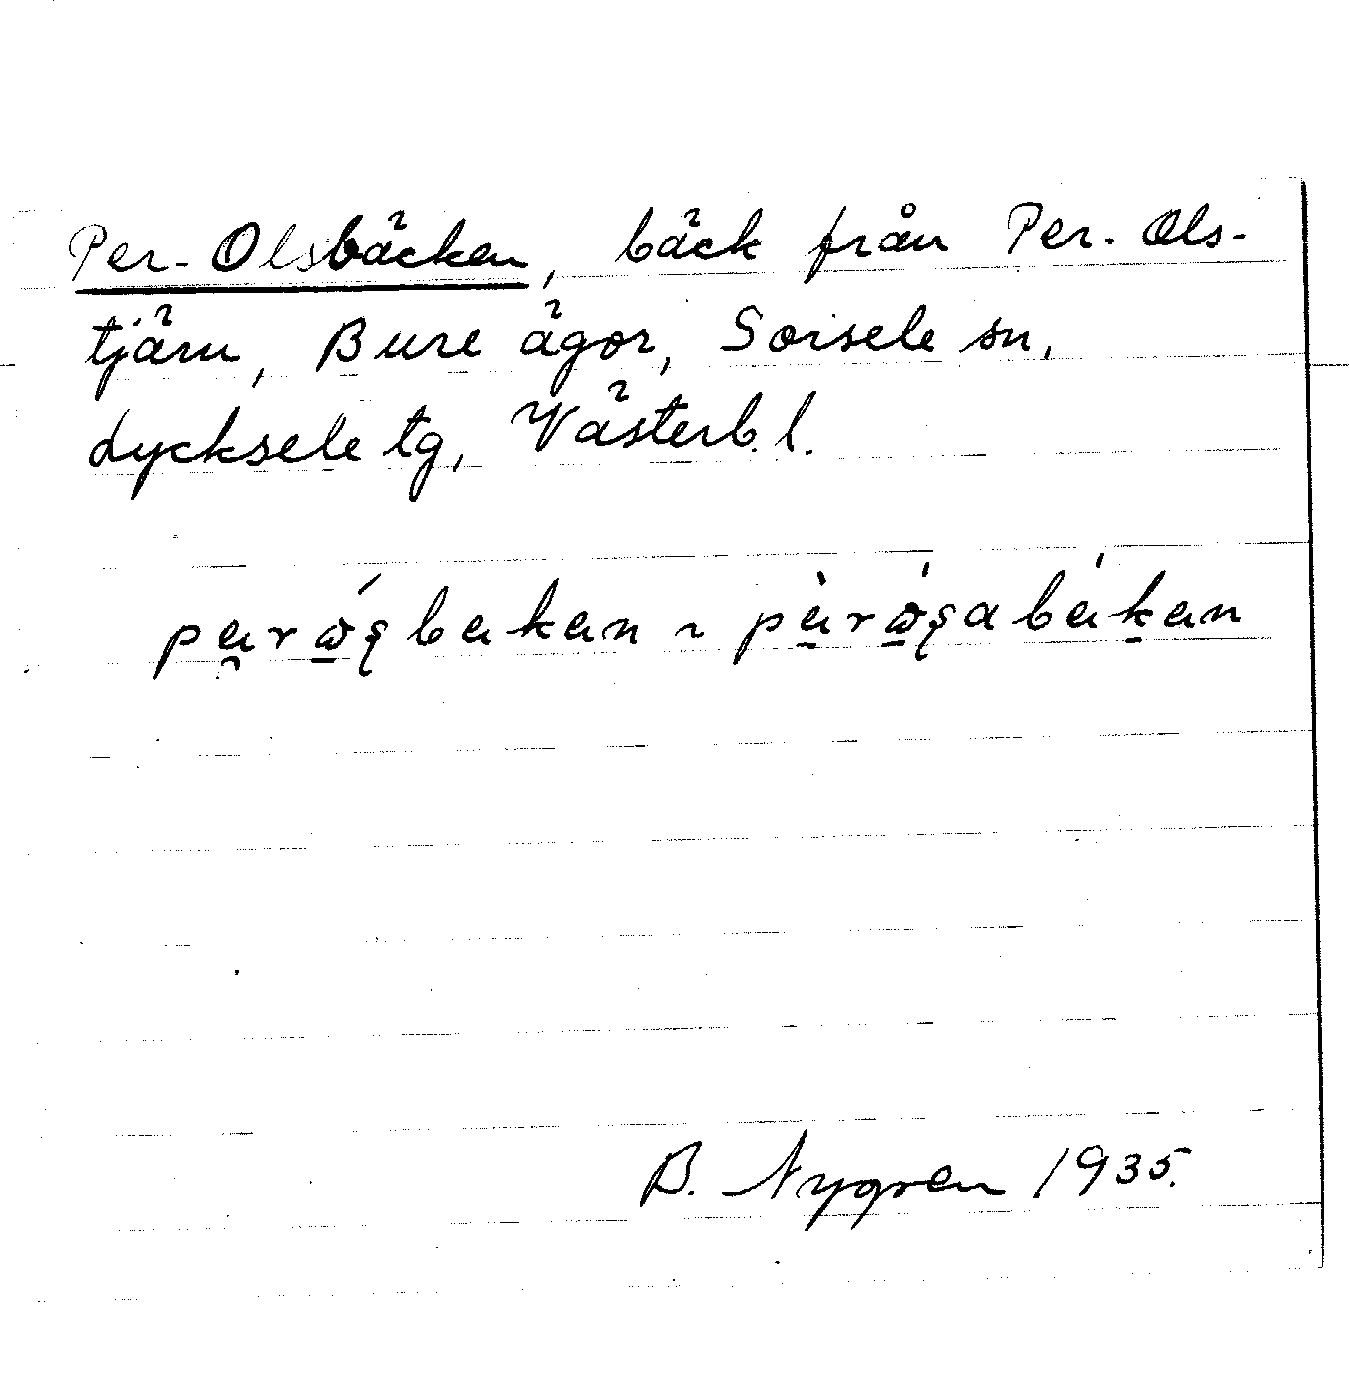 Per-Olsbäcken, bäck från Per-Ols-
tjärn, Bure ägor, Sorsele sn,
Lycksele tg, Västerb. l.
B. Nygren 1935.